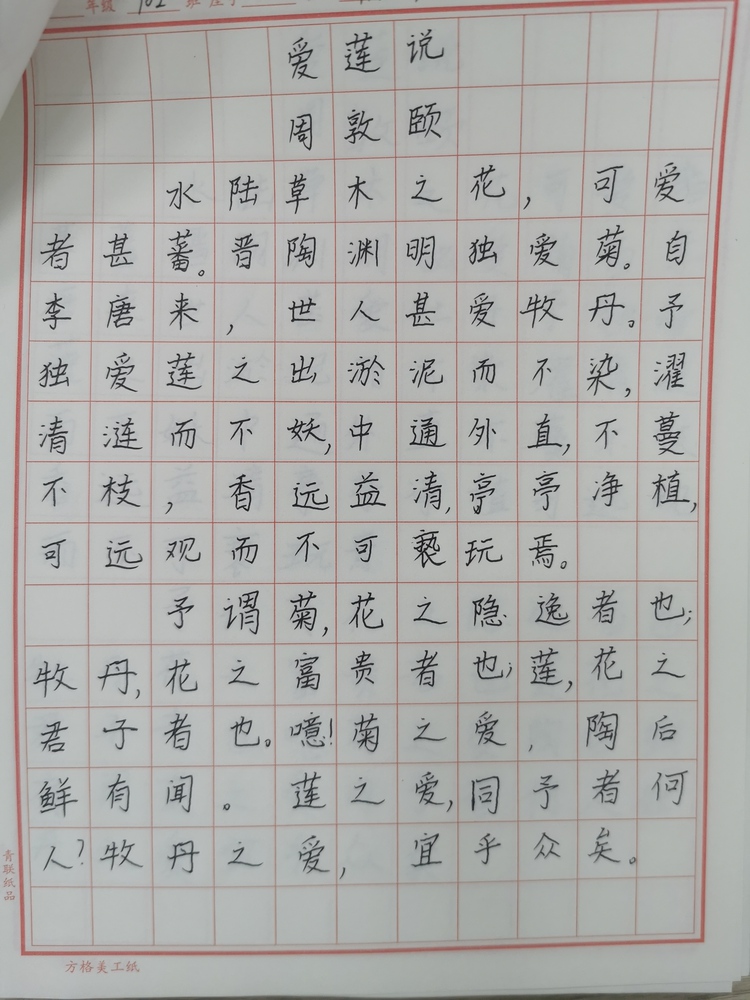 年级 101 班
爱莲说
周敦颐
水陆草木之花，可爱
者甚蕃。晋陶渊明独爱菊。自
李唐来，世人甚爱牧丹。予
独爱莲之出淤泥而不染，濯
清涟而不妖，中通外直，不蔓
不枝，香远益清，亭亭净植，
可远观而不可亵玩焉。
予谓菊，花之隐逸者也；
牧丹，花之富贵者也；莲，花之
君子者也。噫！菊之爱，陶后
鲜有闻。莲之爱，同予者何
人？牧丹之爱，宜乎众矣。
青联纸品
方格美工纸